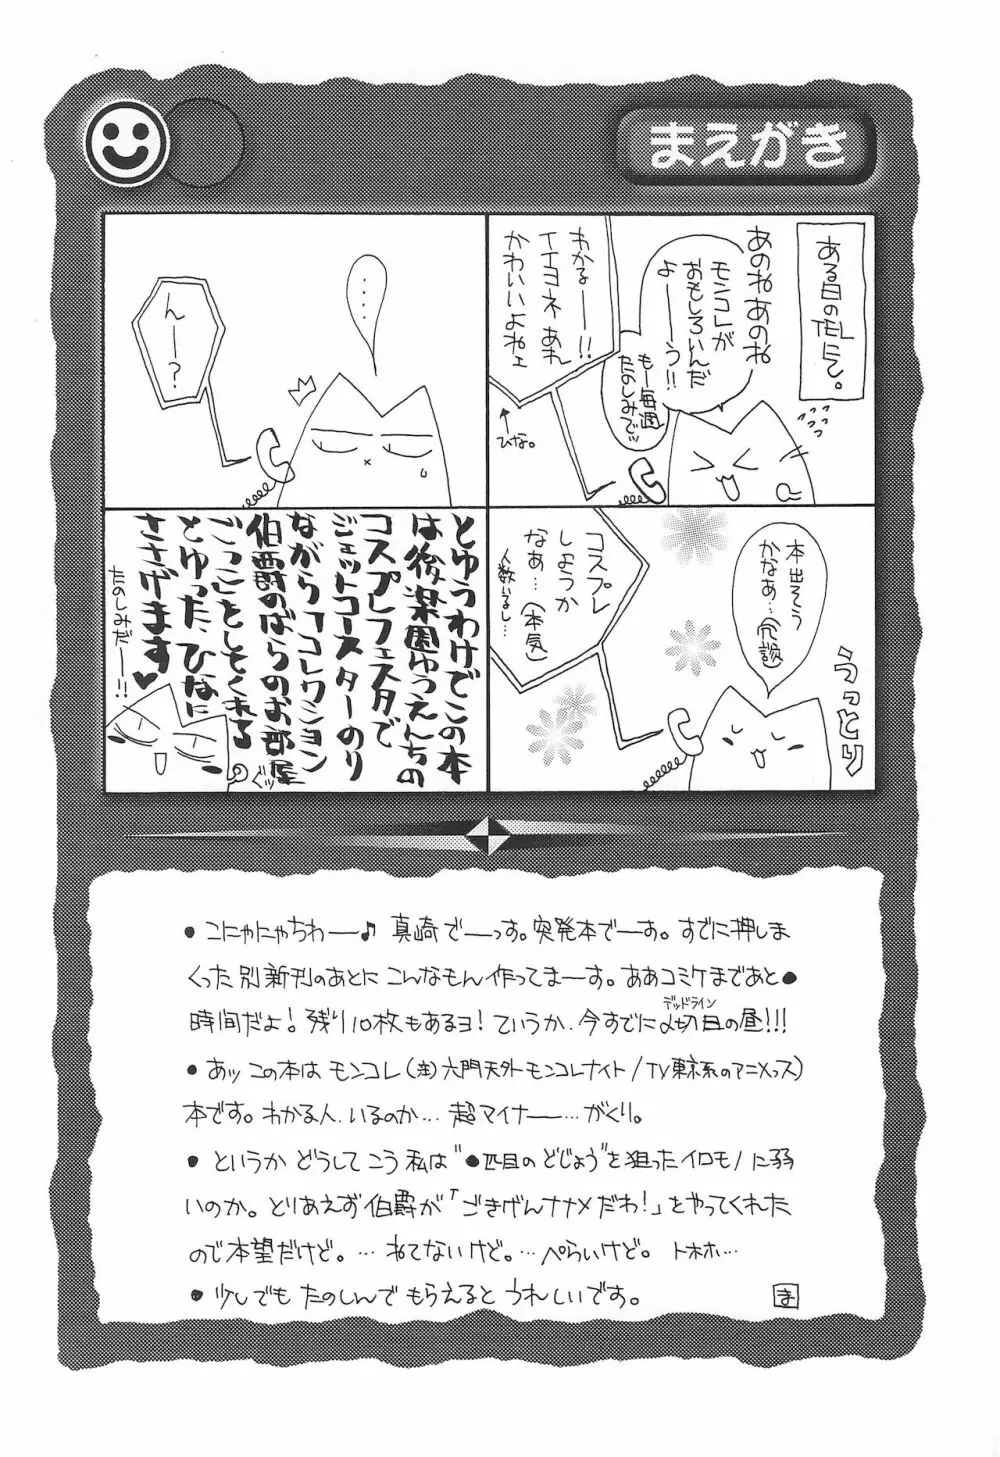 まえがき
ある日のTELにて。
あのねあのね
モンコレが
おもしろいんだ
よーーーう!!
もー毎週
たのしみでッ
わかるーー!!
イイヨネ あれ
かわいいよねェ
←ひな。
本出そう
かなあ…(冗談)
うっとり
コスプレ
しようか
なあ…(本気)
人数いるし…
……
んー?
とゆうわけでこの本
は後楽園ゆうえんちの
コスプレフェスタで
ジェットコースターのり
ながら「コレクション
伯爵のばらのお部屋
ごっこ」をしてくれる
とゆった、ひなに
ささげます♥
たのしみだーー!!
グッ
●こにゃにゃちわーー♪ 真崎でーっす。突発本でーす。すでに押しま
くった別新刊のあとに こんなもん作ってまーす。ああコミケまであと●
時間だよ! 残り10枚もあるヨ! ていうか、今すでに〆切日の昼!!!
デッドライン
●あッ この本は モンコレ(注)六門天外モンコレナイト/TV東京系のアニメっス)
本です。わかる人、いるのか… 超マイナー…がくり。
●というか どうして こう 私は“●匹目のどじょう”を狙ったイロモノに弱
いのか。とりあえず伯爵が「ごきげんナナメだわ!」とやってくれた
ので本望だけど。… ねてないけど。… ぺらいけど。トホホ…
●少しでも たのしんで もらえると うれしいです。
ま